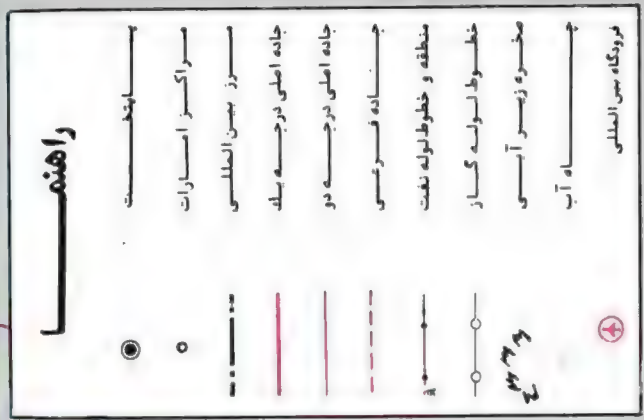 راهنما
پایتخت
مراکز امارات
مرز بین المللی
جاده اصلی درجه یک
جاده اصلی درجه دو
جاده فرعی
منطقه و خطوط لوله نفت
خطوط لوله گاز
صخره زیر آبی
چاه آب
فرودگاه بین المللی